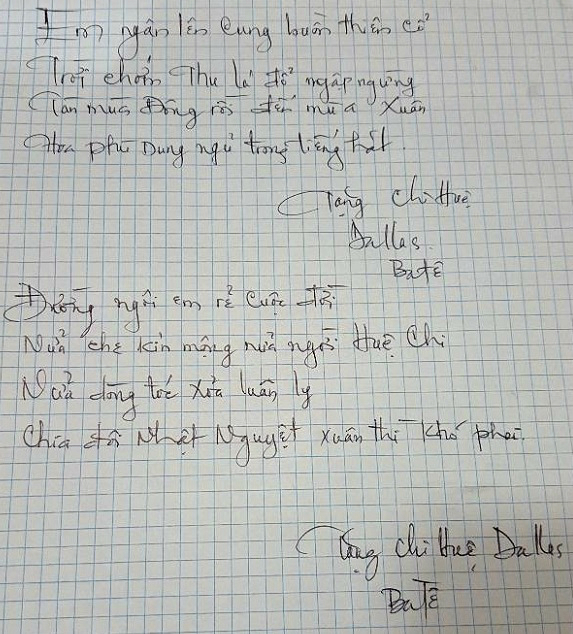 Em ngân lên Cung buồn thiên cổ
Trời chớm Thu lá đổ ngập ngừng
Tàn mùa Đông rồi đến mùa Xuân
Hoa phù Dung ngủ trong tiếng hát.
Tặng chi Huệ
Dallas
Ba tê
Đường ngôi em rẽ Cuộc đời
Nửa che kín mộng nửa ngời Huệ Chi
Nửa dòng tóc xỏa luân ly
Chia đôi Nhật Nguyệt xuân thì khó phai.
Tặng chi Huệ Dallas
Ba Tê